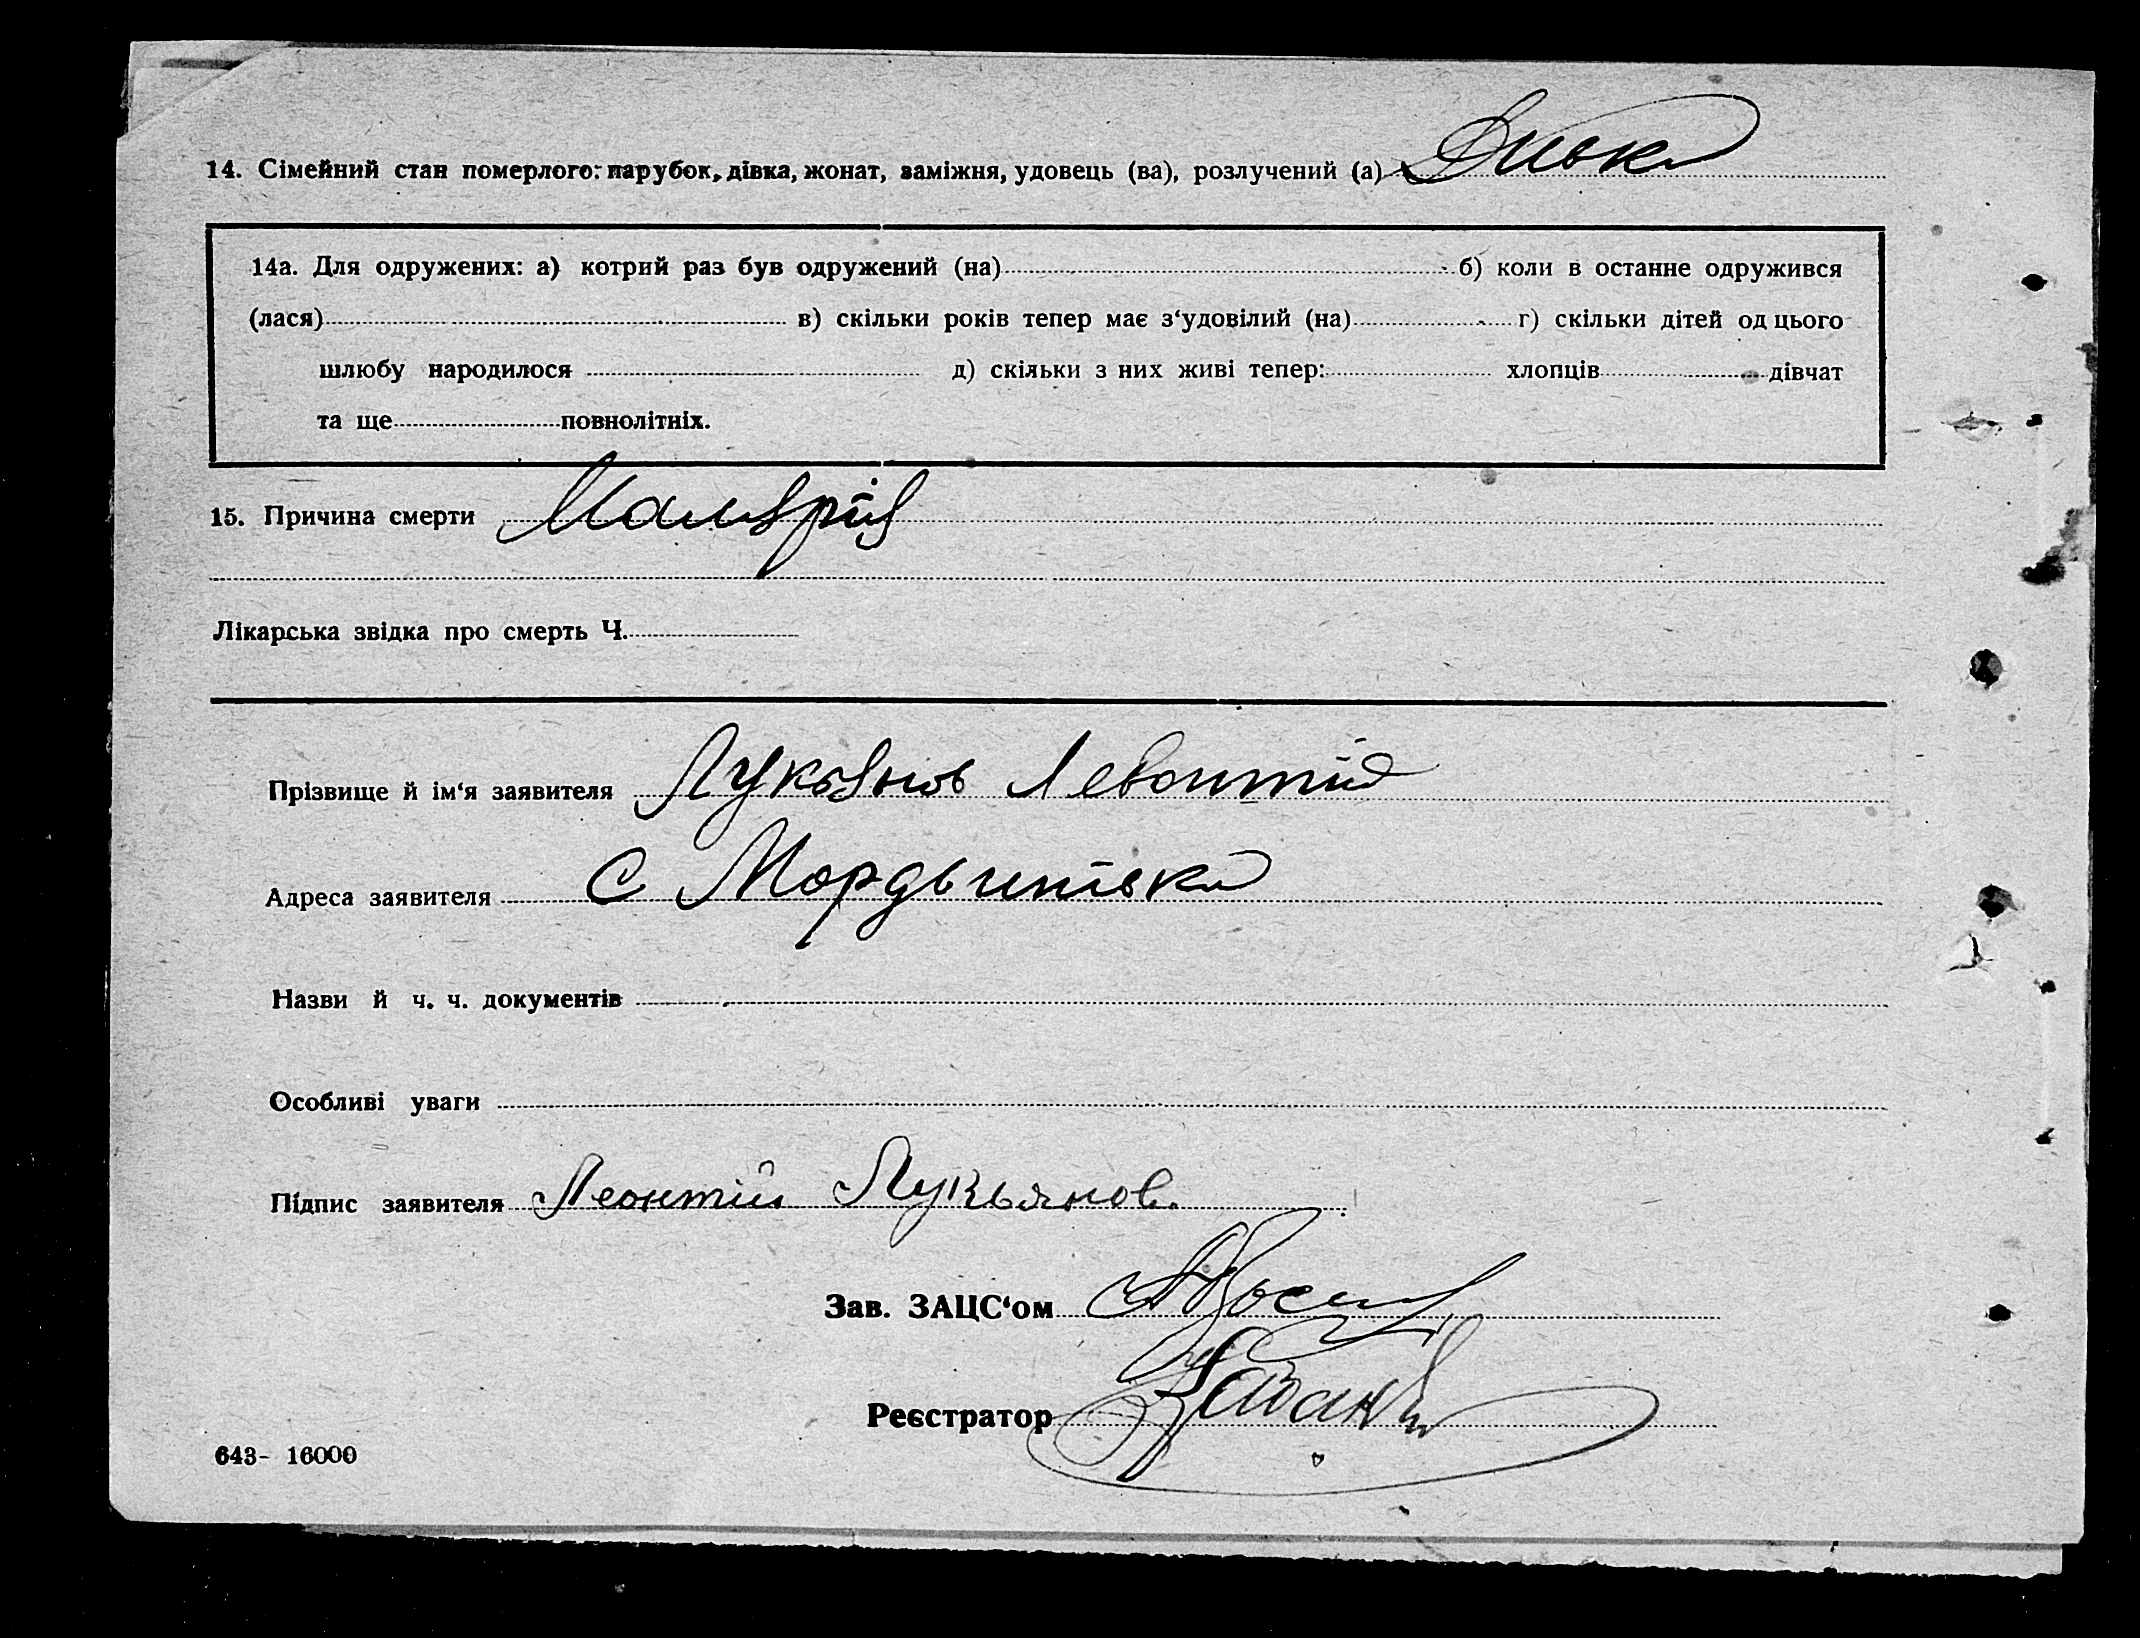 14. Сімейний стан померлого: парубок, дівка, жонат, заміжня, удовець (ва), розлучений (а) Дівка
14а. Для одружених: а) котрий раз був одружений (на) б) коли в останне одружився
(лася) в) скільки років тепер має з‘удовілий (на) г) скільки дітей од цього
шлюбу народилося д) скільки з них живі тепер: хлопців дівчат
та ще повнолітніх.
15. Причина смерти
Лікарська звідка про смерть Ч.
Прізвище й ім‘я заявителя Лукьянов Левонтій
Адреса заявителя с
Назви й ч. ч. документів
Особливі уваги
Підпис заявителя Леонтій Лукьянов.
Зав. ЗАЦС‘ом
Реєстратор
643- 16000